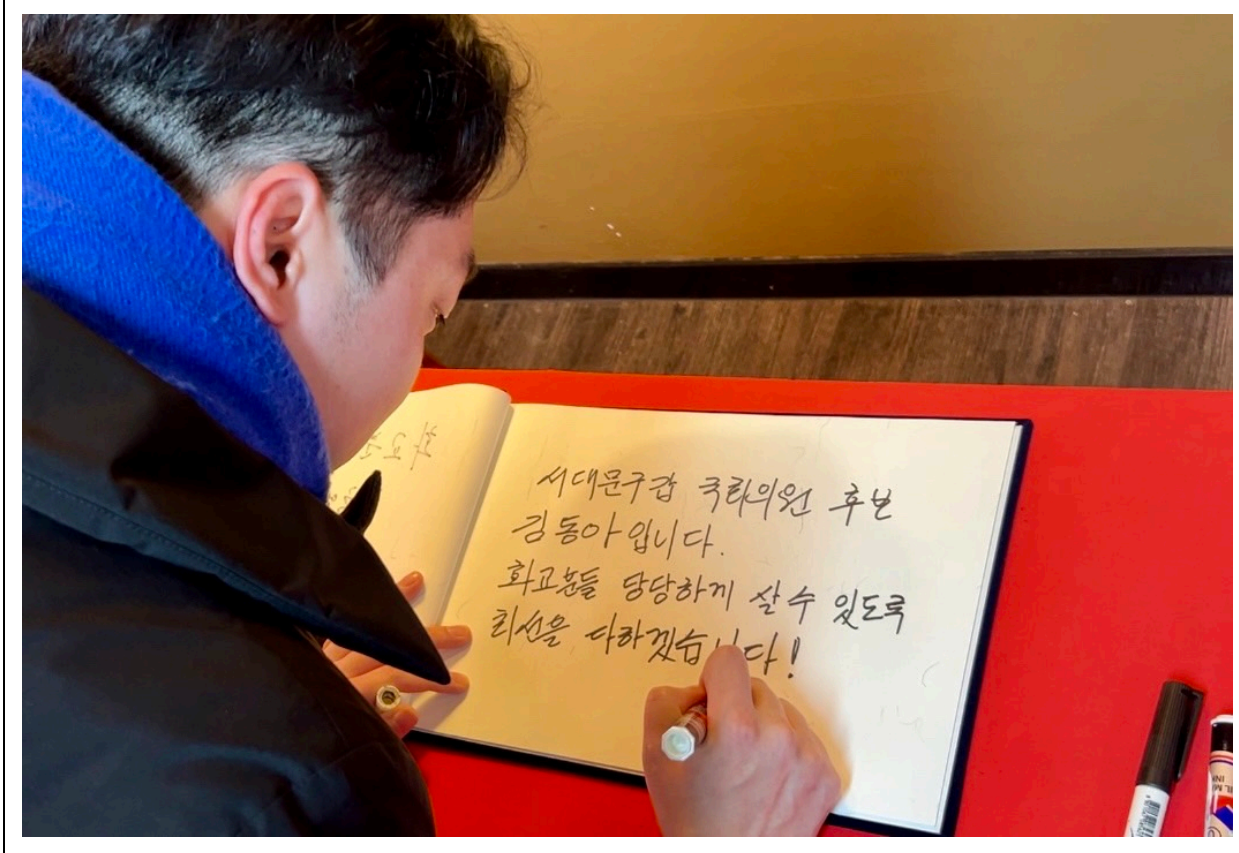 서대문구갑 국회의원 후보
김동아입니다.
화교분들 당당하게 살 수 있도록
최선을 다하겠습니다!